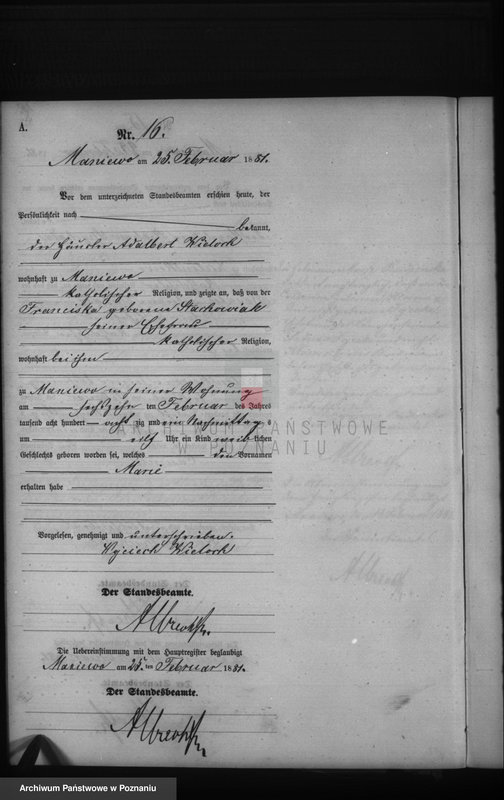 A.
Nr. 16.
Maniewo am 25. Februar 1881.
Vor dem unterzeichneten Standesbeamten erschien heute, der
Persönlichkeit nach
bekannt,
der Häusler Adalbert Wielock
wohnhaft zu Maniewo
katholischer Religion, und zeigte an, daß von der
Franciska geborene Starkowiak
seiner Ehefrau
katholischer Religion,
wohnhaft bei ihm
zu Maniewo in seiner Wohnung
am sechszehn ten Februar des Jahres
tausend acht hundert achtzig und ein Nachmittags
um elf Uhr ein Kind weiblichen
Geschlechts geboren worden sei, welches den Vornamen
Marie
erhalten habe
ARCHIWUM PAŃSTWOWE
W POZNANIU
Vorgelesen, genehmigt und unterschrieben.
Wojciech Wielock
Der Standesbeamte.
Albrecht
Die Uebereinstimmung mit dem Hauptregister beglaubigt
Maniewo am 25. ten Februar 1881.
Der Standesbeamte.
Albrecht
Archiwum Państwowe w Poznaniu